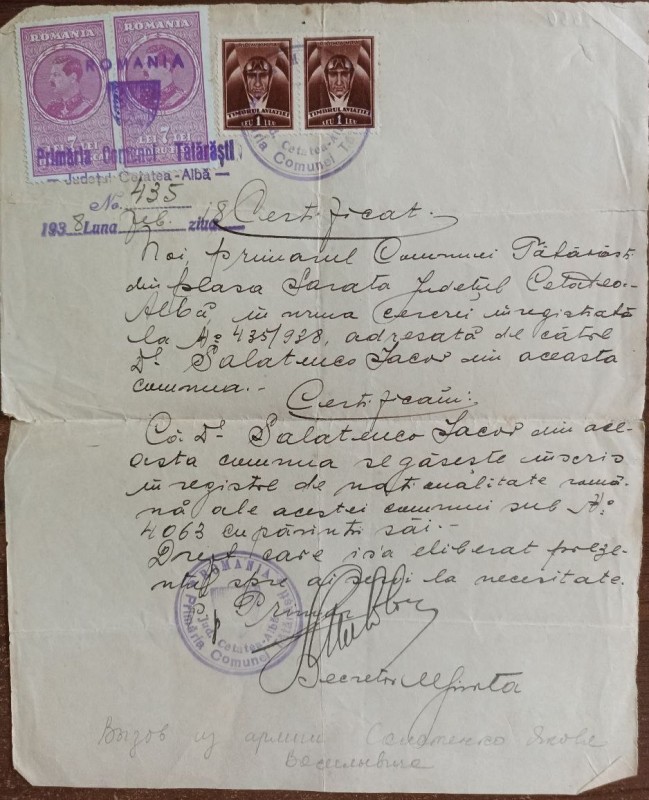 ROMANIA ROMANIA
ROMANIA
7 LEI 7 LEI
TIMBRUL AVIAȚIEI TIMBRUL AVIAȚIEI
1 LEU 1 LEU
Primăria Comunei Tătărăști
Județul Cetatea-Albă
No. 435
1938 Luna Feb. ziua 18
Certificat.
Noi, primarul Comunei Tătărăști
din plasa Sarata Județul Cetatea-
Albă în urma cererei înregistrată
la No 435/938, adresată de către
Dl Salatenco Iacov din aceasta
comuna.-
Certificăm:
Că Dl Salatenco Iacov din ace-
easta comuna se găsește înscris
în registrol de naționalitate româ-
nă ale acestei comuni sub No
4063 cu părinți săi.-
Drept care is'a eliberat preze-
ntul spre ai servi la necesitate.
p. Primar
ROMANIA
Primăria Comunei Tătărăști
Jud. Cetatea-Albă
Secretar
Вызов из армии Саломенко Якова
Васильевича